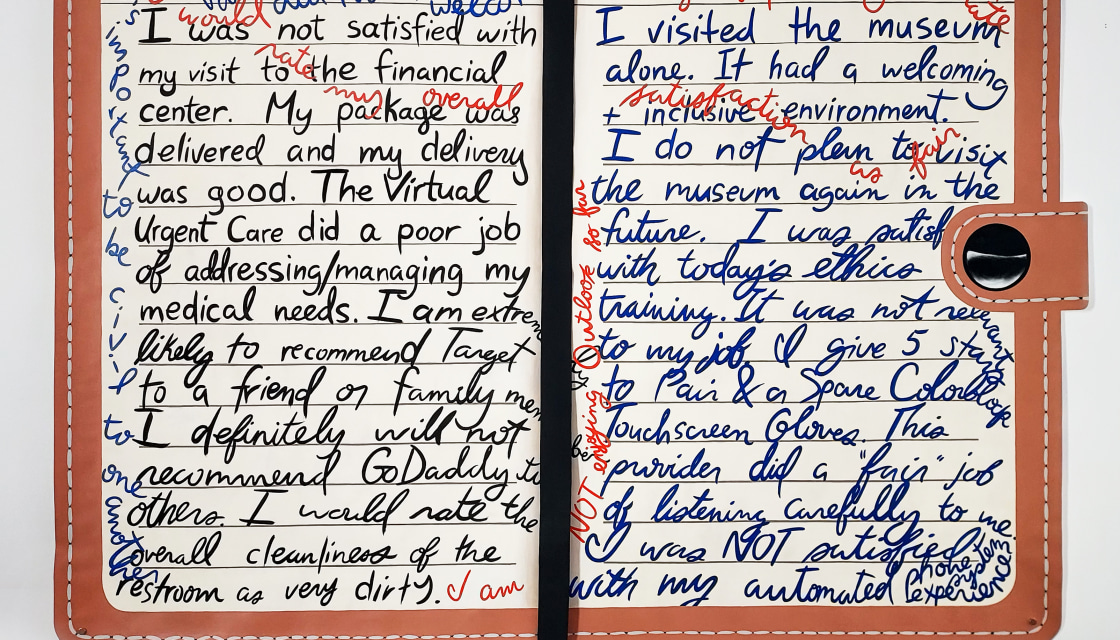 would
welco
I was not satisfied with
my visit to the financial
center. My package was
delivered and my delivery
was good. The Virtual
Urgent Care did a poor job
of addressing/managing my
medical needs. I am extrem
likely to recommend Target
to a friend or family mem
I definitely will not
recommend GoDaddy to
others. I would rate the
overall cleanliness of the
restroom as very dirty. I am
rate
my overall
important to be civil to one another
NOT enjoying
Outlook so far
be
I visited the museum
alone. It had a welcoming
+ inclusive environment.
I do not plan to visit
the museum again in the
future. I was satisf
with today's ethics
training. It was not relevant
to my job. I give 5 stars
to Pair & a Spare Colorblock
Touchscreen Gloves. This
provider did a "fair" job
of listening carefully to me.
I was NOT satisfied
with my automated phone system experience.
satisfaction
as fair